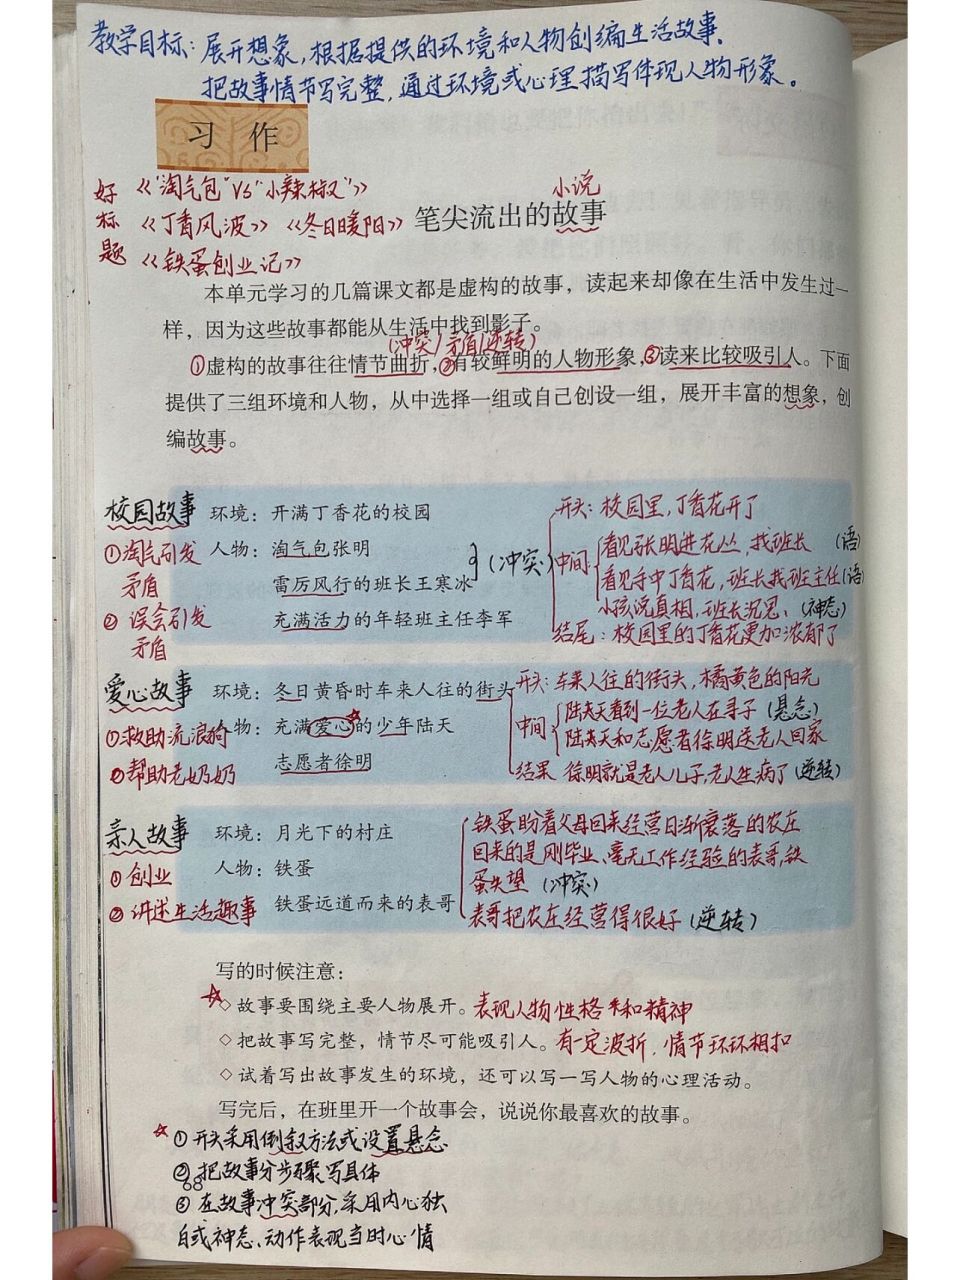 教学目标：展开想象，根据提供的环境和人物创编生活故事.
把故事情节写完整，通过环境或心理描写体现人物形象。
习 作
好标题
《“淘气包”VS“小辣椒”》
《丁香风波》 《冬日暖阳》
《铁蛋创业记》
小说
笔尖流出的故事
本单元学习的几篇课文都是虚构的故事，读起来却像在生活中发生过一
样，因为这些故事都能从生活中找到影子。
(冲突/矛盾/逆转)
①虚构的故事往往情节曲折，②有较鲜明的人物形象，③读来比较吸引人。下面
提供了三组环境和人物，从中选择一组或自己创设一组，展开丰富的想象，创
编故事。
校园故事
①淘气引发
矛盾
② 误会引发
矛盾
环境：开满丁香花的校园
人物：淘气包张明
雷厉风行的班长王寒冰
(冲突)
充满活力的年轻班主任李军
开头：校园里，丁香花开了
中间：
看见张明进花丛，找班长 (语)
看见手中丁香花，班长找班主任(语)
小孩说真相，班长沉思、(神态)
结尾：校园里的丁香花更加浓郁了
爱心故事
①救助流浪狗
②帮助老奶奶
环境：冬日黄昏时车来人往的街头
人物：充满爱心的少年陆天
志愿者徐明
开头：车来人往的街头，橘黄色的阳光
中间
陆天看到一位老人在寻子 (悬念)
陆天和志愿者徐明送老人回家
结果 徐明就是老人儿子，老人生病了(逆转)
亲人故事
① 创业
② 讲述生活趣事
环境：月光下的村庄
人物：铁蛋
铁蛋远道而来的表哥
铁蛋盼着父母回来经营日渐衰落的农庄
回来的是刚毕业、毫无工作经验的表哥，铁
蛋失望 (冲突)
表哥把农庄经营得很好(逆转)
写的时候注意：
☆◇故事要围绕主要人物展开。表现人物性格和精神
◇把故事写完整，情节尽可能吸引人。有一定波折，情节环环相扣
◇试着写出故事发生的环境，还可以写一写人物的心理活动。
写完后，在班里开一个故事会，说说你最喜欢的故事。
☆①开头采用倒叙方法或设置悬念
②把故事分步骤写具体
68
③在故事冲突部分，采用内心独
白或神态、动作表现当时心情